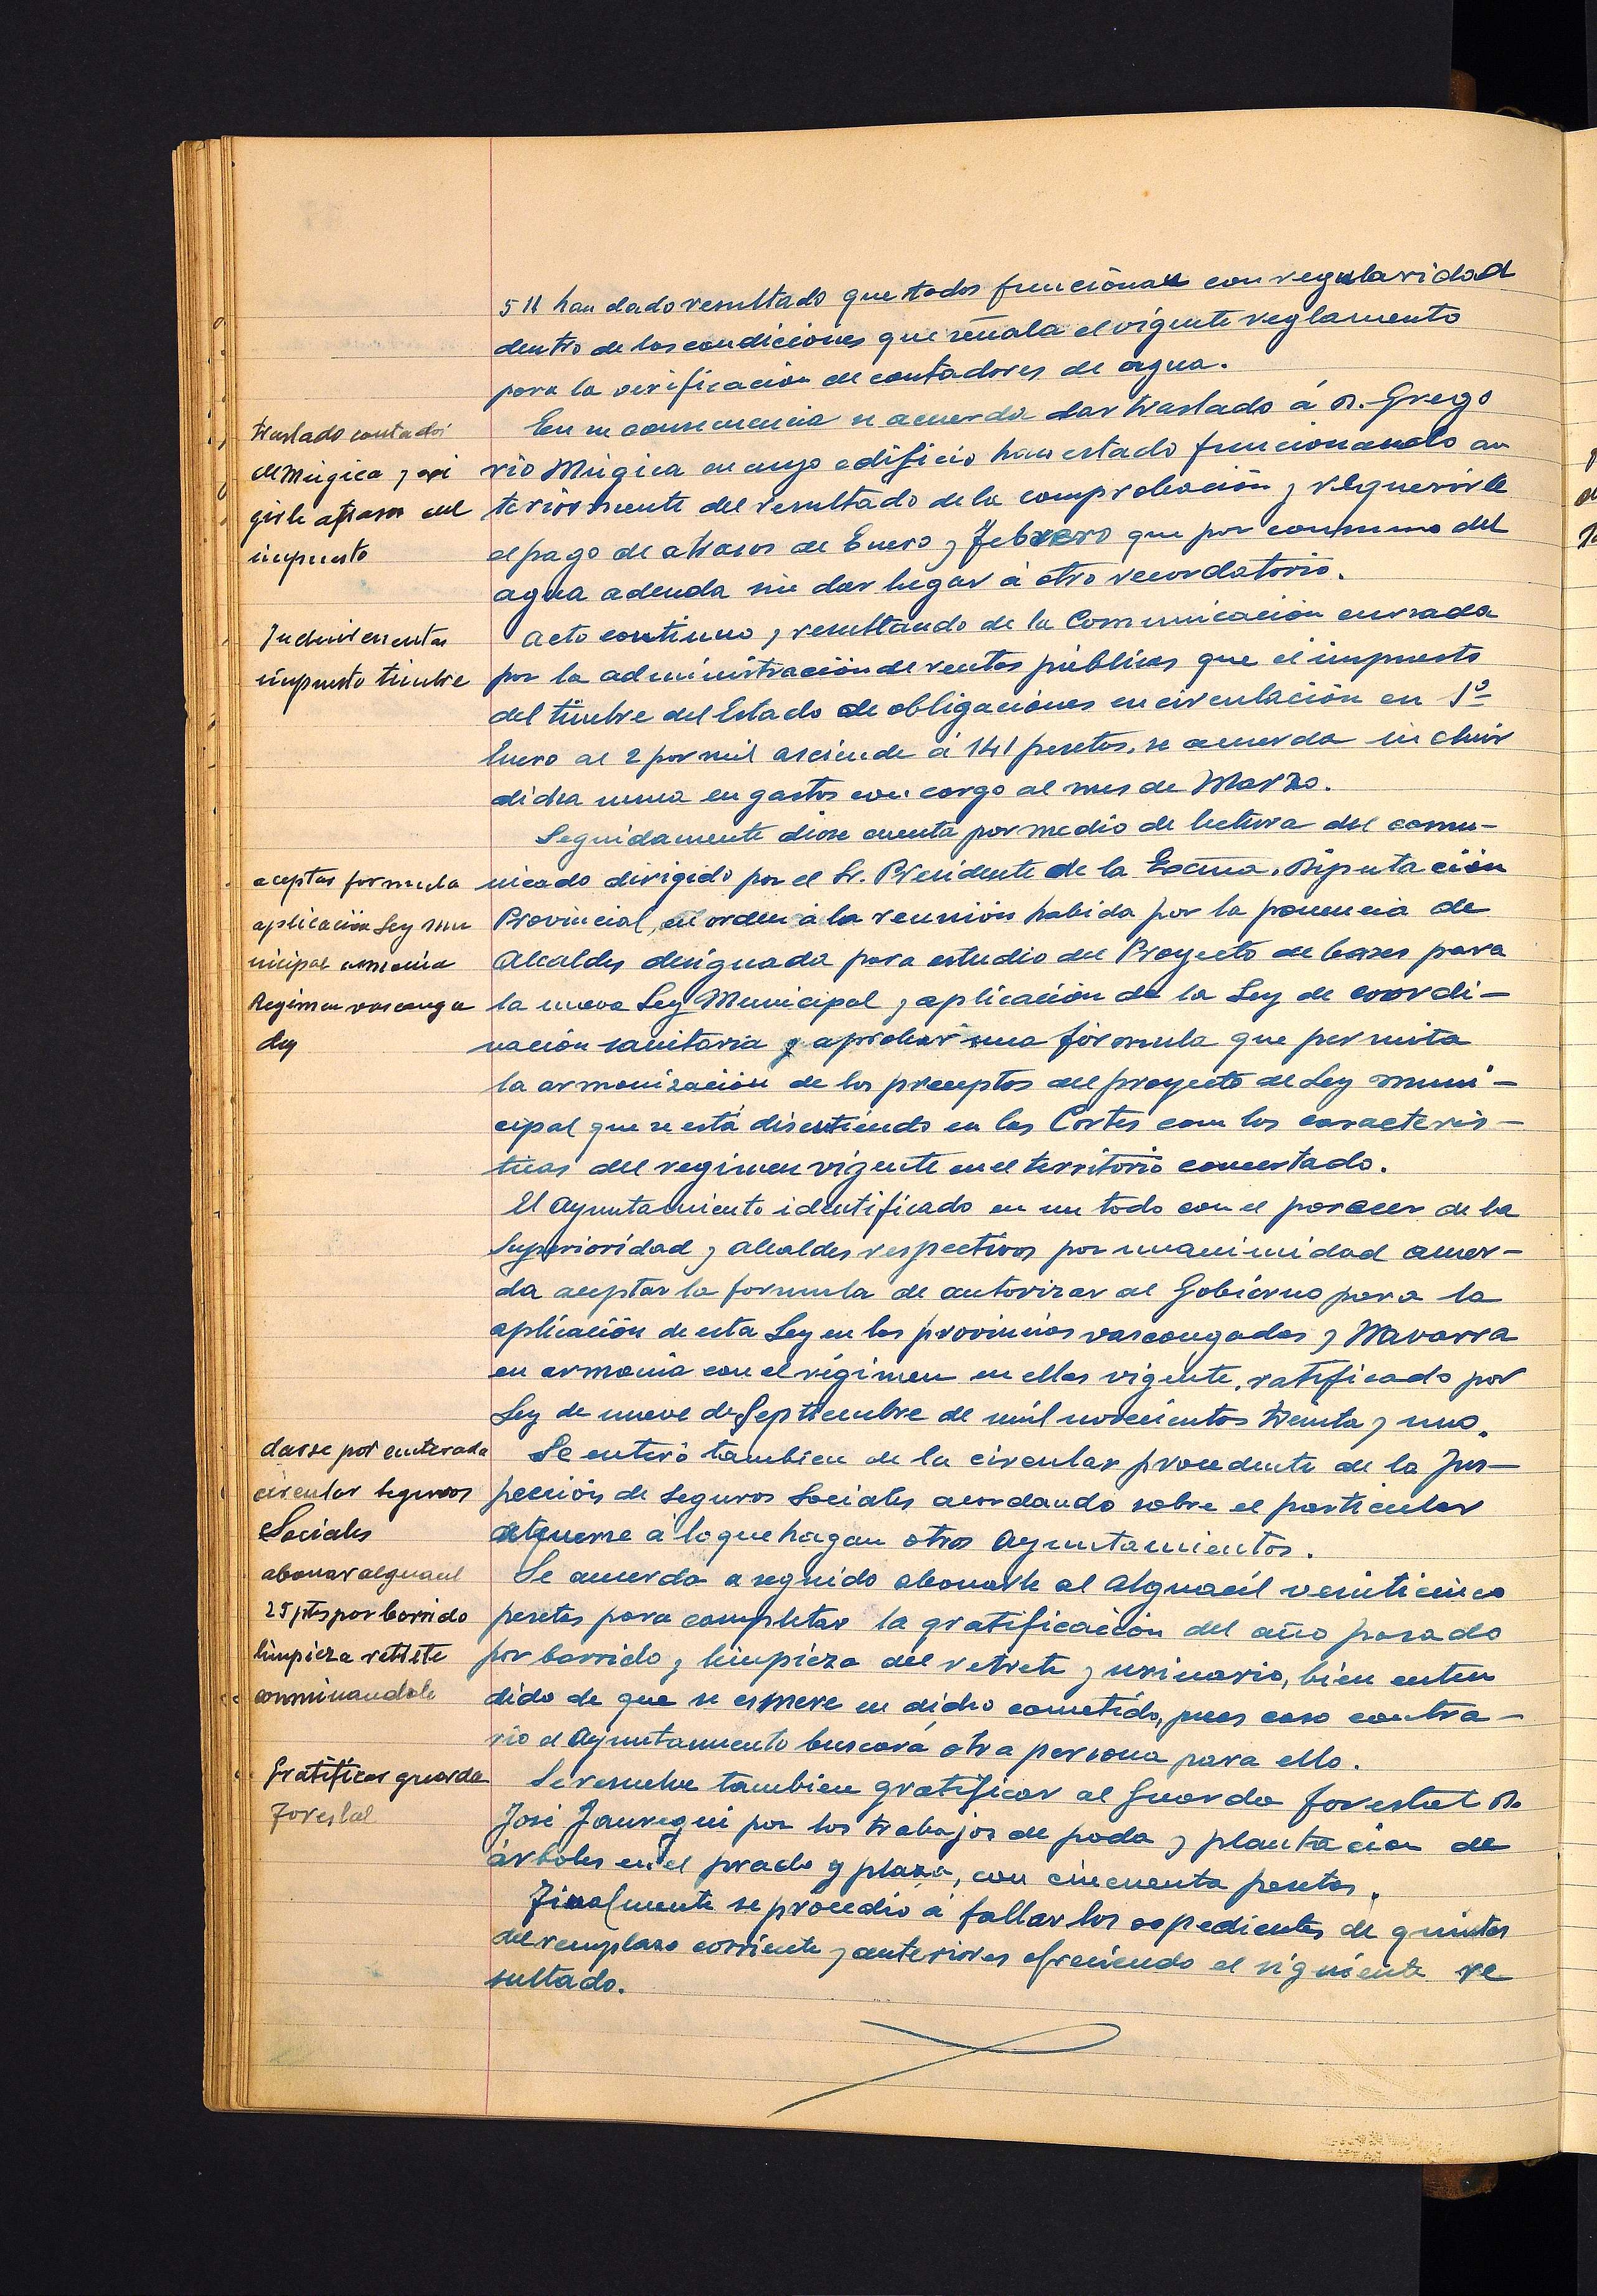 511 han dado resultado que todos funcionan con regularidad
dentro de las condiciones que señala el vigente reglamento
para la verificación de contadores de agua.
traslado contador
de Múgica y exi
girle atrasos del
impuesto
En su consecuencia se acuerda dar traslado á D. Grego
rio Múgica en cuyo edificio han estado funcionando an
teriormente del resultado de la comprobación y requerirle
el pago de atrasos de Enero y Febrero que por consumo del
agua adeuda sin dar lugar á otro recordatorio.
Incluir en cuentas
impuesto timbre
Acto continuo y resultando de la Comunicación cursada
por la administración de rentas públicas que el impuesto
del timbre del Estado de obligaciones en circulación en 1º
Enero al 2 por mil asciende á 141 pesetas, se acuerda incluir
dicha suma en gastos con cargo al mes de Marzo.
aceptar formula
aplicación Ley mu
nicipal armonia
Regimen vasconga
do
Seguidamente diose cuenta por medio de lectura del comu-
nicado dirigido por el Sr. Presidente de la Excma. Diputación
Provincial, en orden á la reunión habida por la ponencia de
Alcaldes designada para estudio del Proyecto de bases para
la nueva Ley Municipal y aplicación de la Ley de coordi-
nación sanitaria y aprobar una fórmula que permita
la armonización de los preceptos del proyecto de Ley muni-
cipal que se está discutiendo en las Cortes con las caracterís-
ticas del regimen vigente en el territorio concertado.
El Ayuntamiento identificado en un todo con el parecer de la
Superioridad y alcaldes respectivos por unanimidad acuer-
da aceptar la formula de autorizar al Gobierno para la
aplicación de esta Ley en las provincias vascongadas y Navarra
en armonia con el régimen en ellas vigente, ratificado por
Ley de nueve de Septiembre de mil novecientos treinta y uno.
darse por enterada
circular seguros
Sociales
Se enteró tambien de la circular procedente de la Ins-
pección de Seguros Sociales acordando sobre el particular
atenerse á lo que hagan otros Ayuntamientos.
abonar alguacil
25 pts por barrido
limpieza retrete
conminandole
Se acuerda a seguido abonarle al Alguacil veinticinco
pesetas para completar la gratificación del año pasado
por barrido y limpieza del retrete y urinario, bien enten
dido de que se esmere en dicho cometido, pues caso contra-
rio el Ayuntamiento buscará otra persona para ello.
Gratificar guarda
Forestal
Se resuelve tambien gratificar al Guarda forestal D.
José Jauregui por los trabajos de poda y plantación de
árboles en el prado y plaza, con cincuenta pesetas.
Finalmente se procedió á fallar los expedientes de quintas
del remplazo corriente y anteriores ofreciendo el siguiente re
sultado.